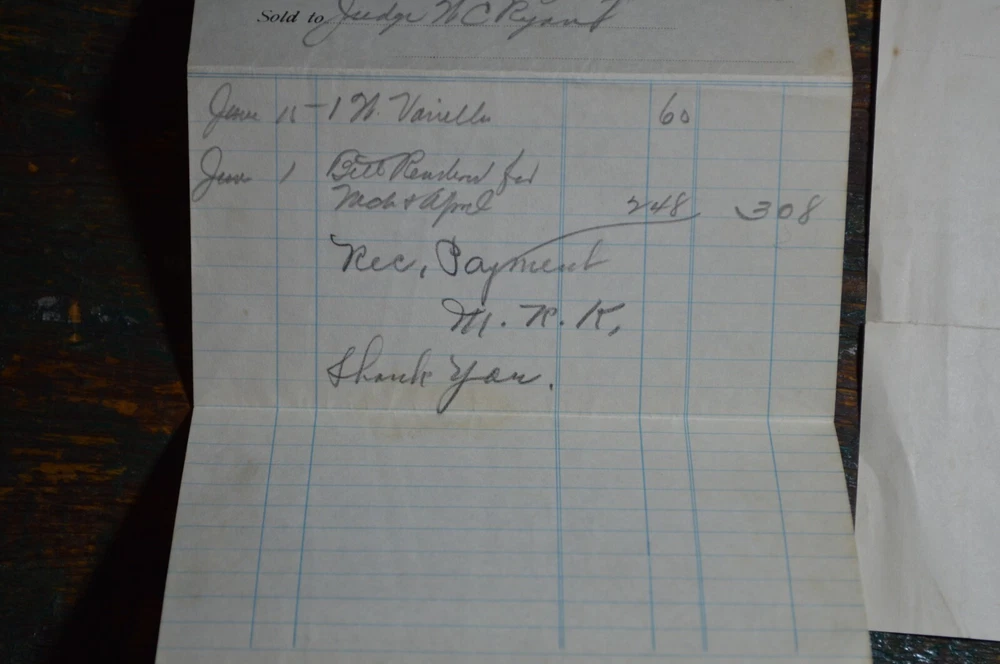 Sold to Judge W C Ryant
June 11 - 1 W. Vanilla 60
June 1 Bill Rendered for
Mch & April 248 308
Rec, Payment
M. R. K.
Thank You.